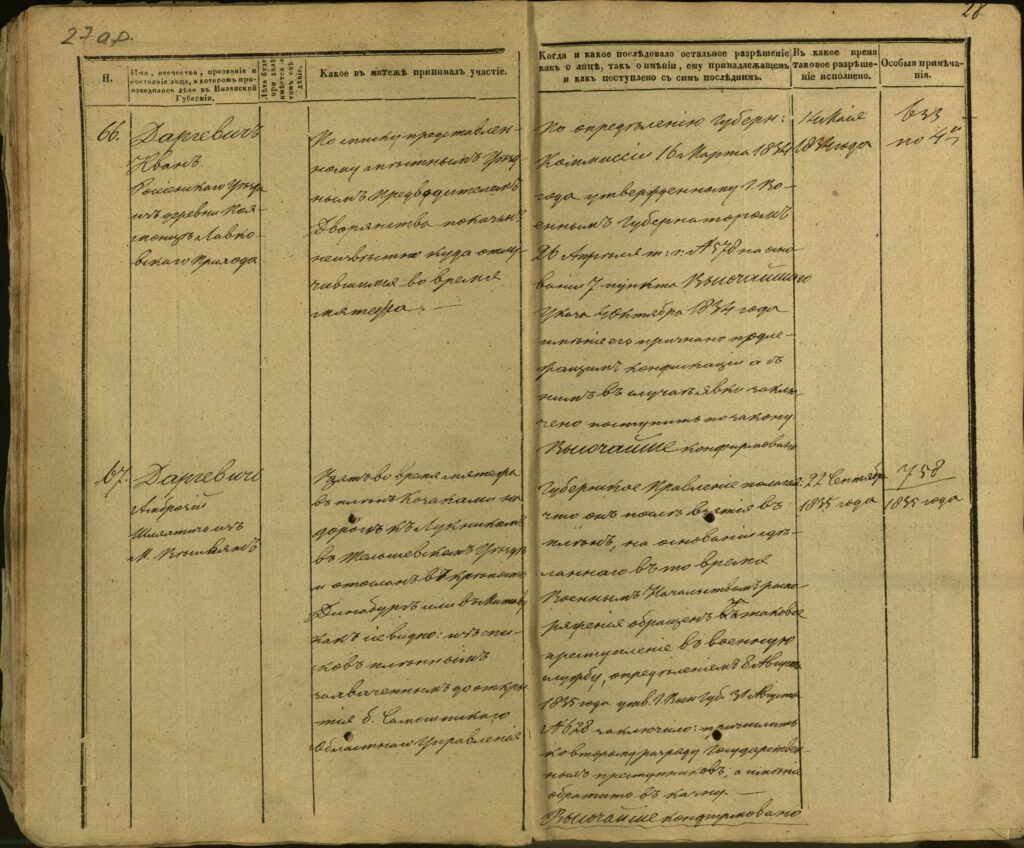 27 ад.
28
Н.
Имя, отечество, прозваніе и
состояніе лица, о которомъ про-
изводилось дѣло въ Виленской
Губерніи.
Какое въ мятежѣ принималъ участіе.
Когда и какое послѣдовало остальное разрѣшеніе
какъ о лицѣ, такъ о имѣніи, ему принадлежащемъ
и какъ поступлено съ симъ послѣднимъ.
Въ какое время
таковое разрѣше-
ніе исполнено.
Особыя примѣча-
нія.
66.
Даргевичъ
Иванъ
Россіенскаго Уѣзда
изъ деревни
Лавко-
вскаго Прихода
По списку представлен-
ному мѣстнымъ Уѣзд-
нымъ Предводителемъ
Дворянства показанъ
неизвѣстно куда отлу-
чившимся во время
мятежа. —
По опредѣленію Губерн:
Коммиссіи 16 Марта 1834
года утвержденному Г. Во-
еннымъ Губернаторомъ
26 Апрѣля т: г: № 578 на осно-
ваніи 7 пункта Высочайшаго
Указа 4 Октября 1834 года
имѣніе его признано подле-
жащимъ конфискаціи а съ
нимъ въ случаѣ явки заклю-
чено поступить по закону.
Высочайше конфирмовано
14 Мая
1834 года
633
по 4й
67.
Даргевичъ
Амброжій
Шляхтичъ изъ
м.
Взятъ во время мятежа
въ плѣнъ Козаками на
дорогѣ къ Лукникамъ
въ Тельшевскомъ Уѣздѣ
и отосланъ въ крѣпость
Динабургъ или въ Митаву
какъ невидно: изъ спи-
сковъ плѣннымъ
захваченнымъ до откры-
тія б. Самогитскаго
Областнаго Управленія
Губернское Правленіе полагая:
что онъ послѣ взятія въ
плѣнъ, на основаніи сдѣ-
ланнаго въ то время
Военнымъ Начальствомъ распо-
ряженія обращенъ за таковое
преступленіе въ военную
службу, опредѣленіемъ 8 Августа
1835 года утв. Г. Воен. Губ. 31 Августа
№ 628 заключило: причислить
ко второму разряду Государствен-
ныхъ преступниковъ, а имѣніе
обратить въ казну —
Высочайше конфирмовано
22 Сентября
1835 года
758
1835 года